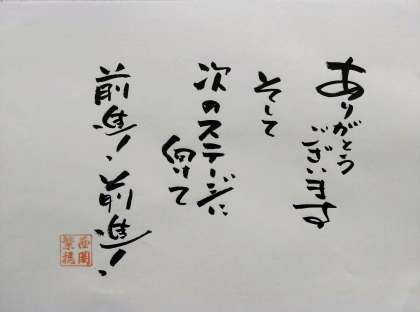 ありがとう
ございます
そして
次のステージに
向けて
前進！前進！